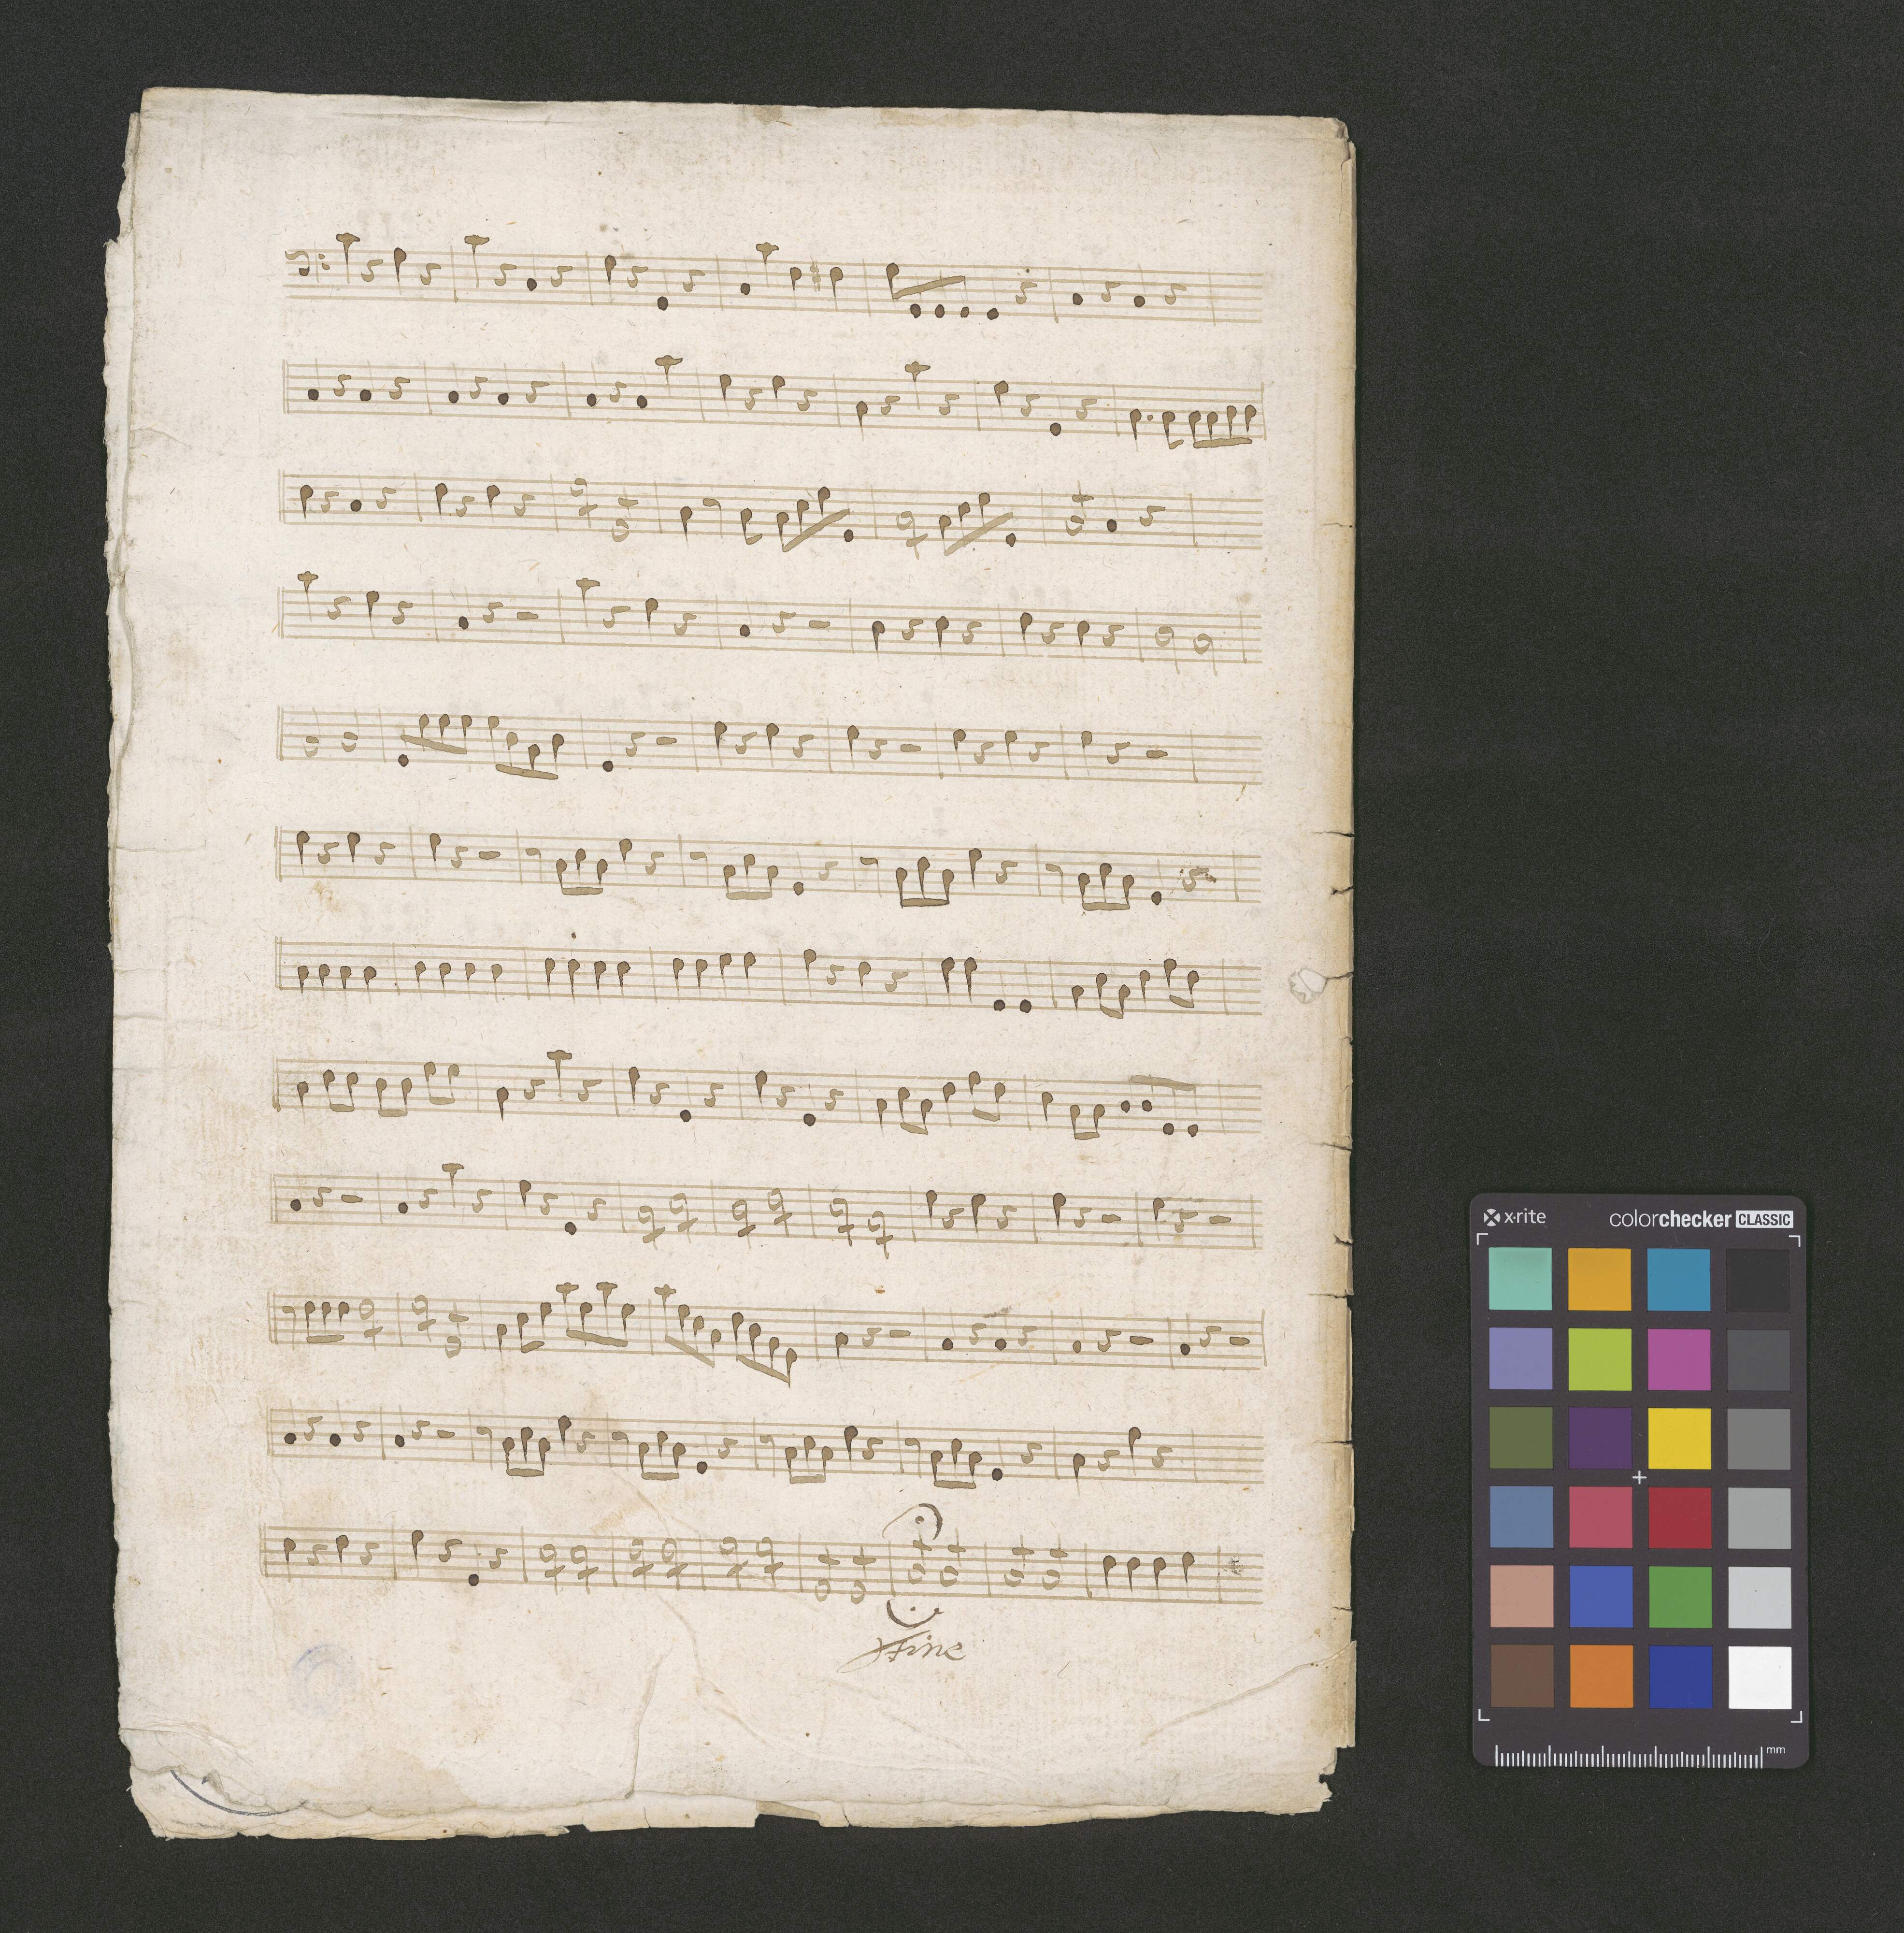 Fine
x·rite colorchecker CLASSIC
mm